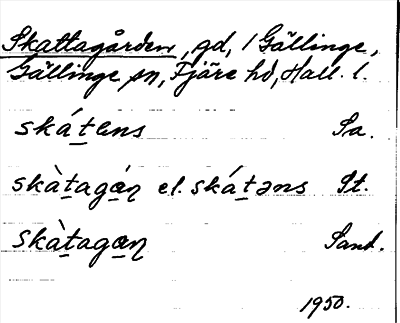 Skattagården, gd, 1 Gällinge,
Gällinge sn, Fjäre hd, Hall. l.
skát̠ens Sa.
skàt̠agán̥ el. skát̠əns St.
skàt̠agan̥ Sand.
1950.